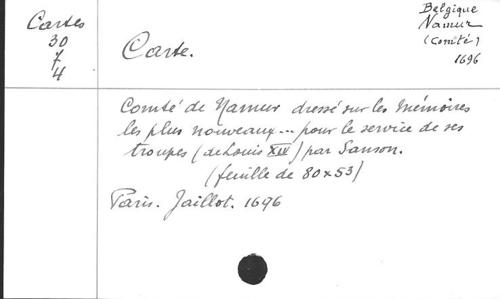 Cartes
30
7
4
Belgique
Namur
(Comté)
1696
Carte.
Comté de Namur dressé sur les Mémoires
les plus nouveaux... pour le service de ses
troupes (de Louis XIV) par Sanson.
(feuille de 80x53)
Paris. Jaillot. 1696